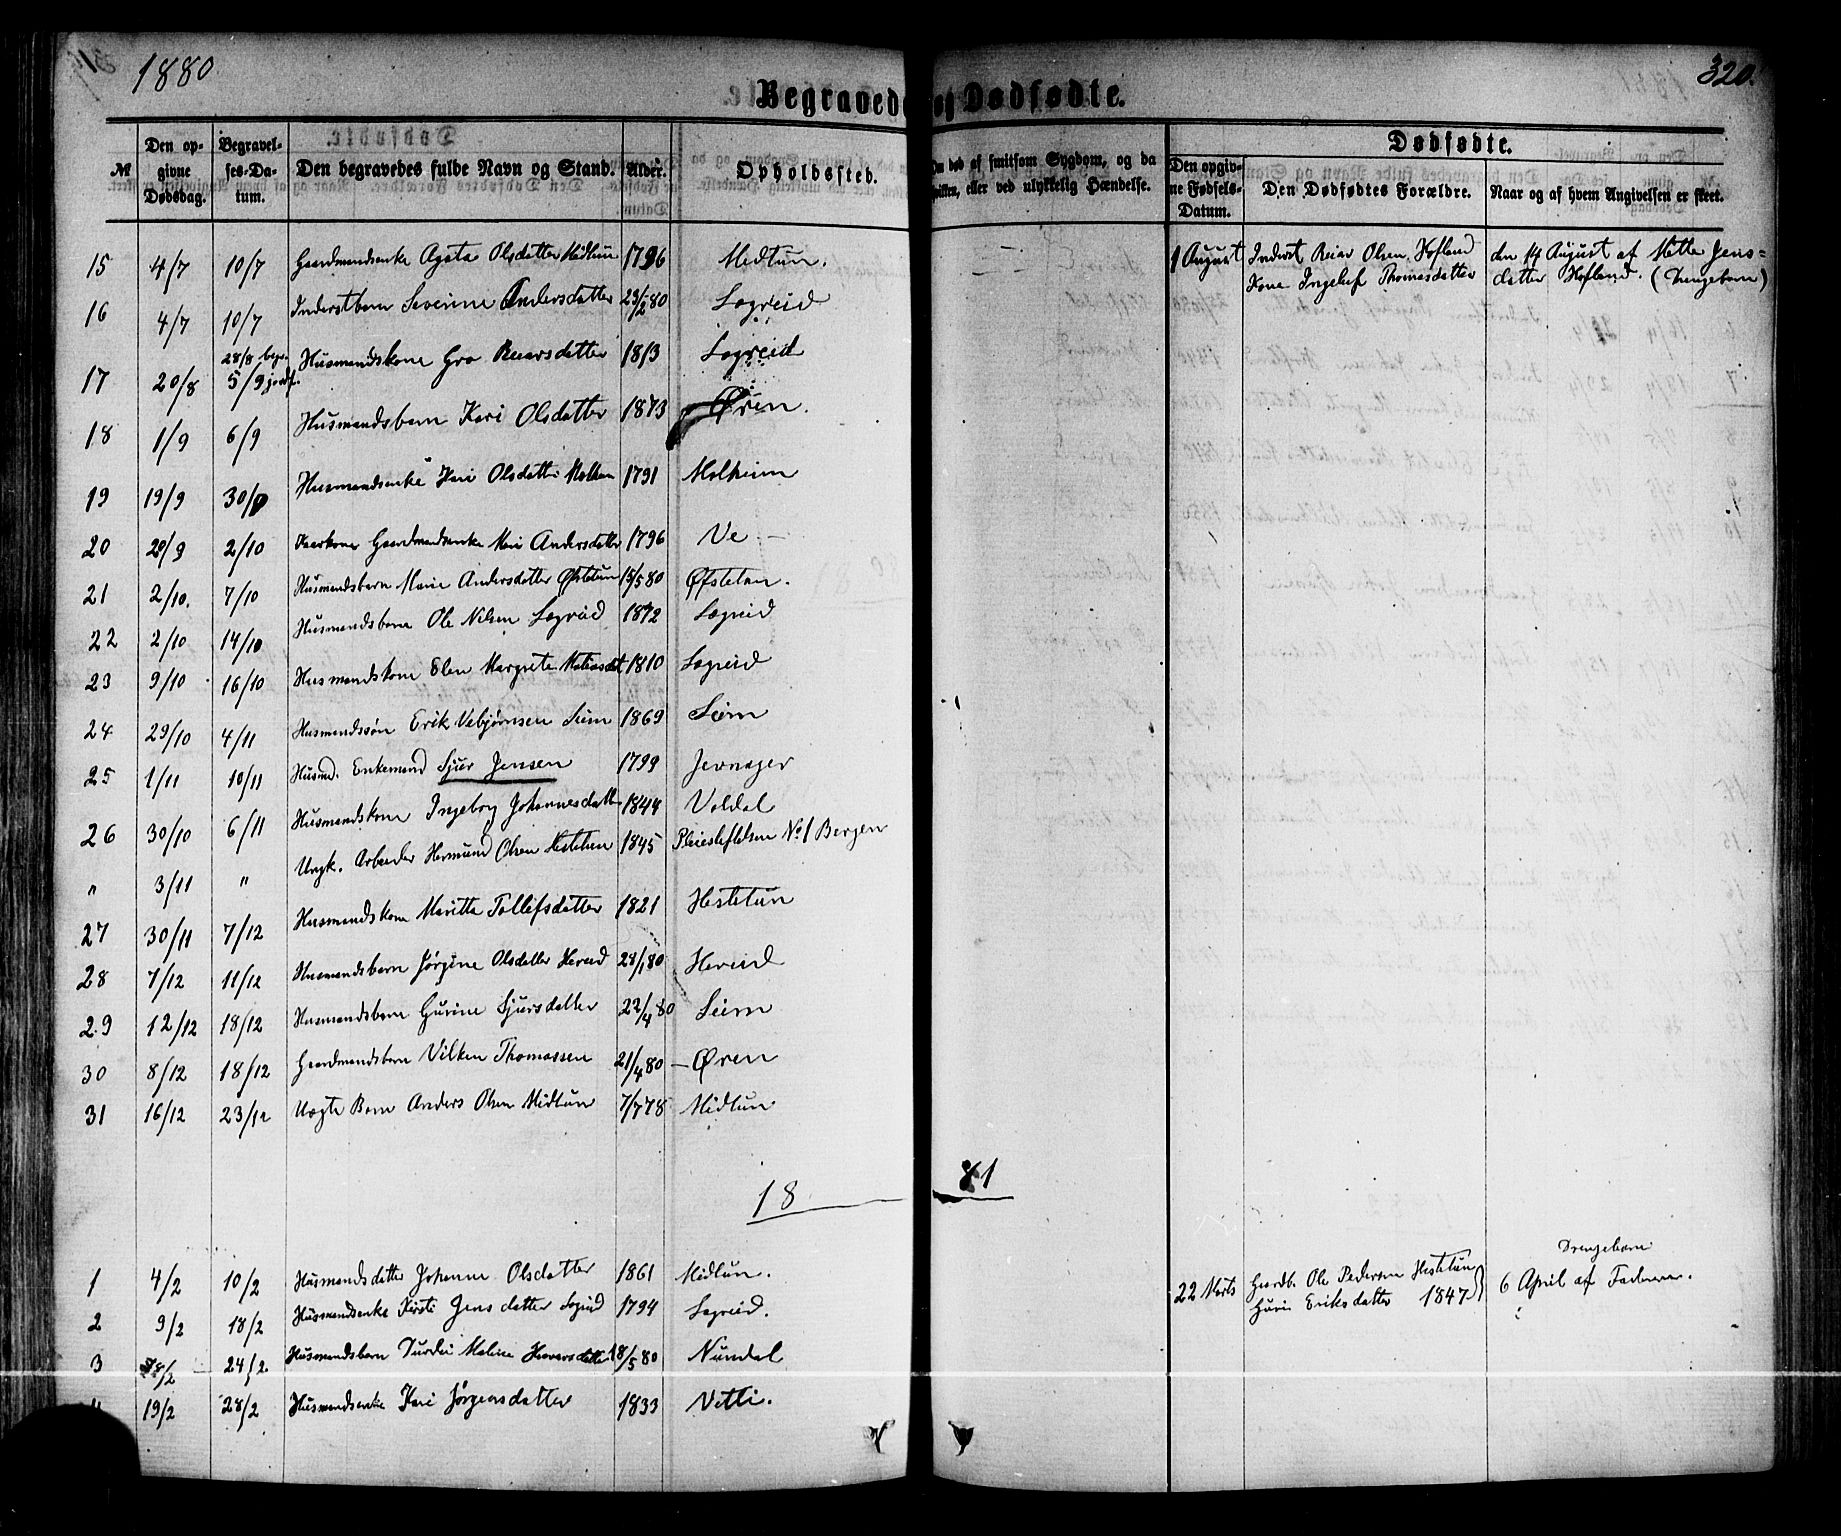 1880
320.
Begravede og Dødfødte.
Dødfødte.
№ Den opgivne Dødsdag. Begravelses-Datum. Den begravedes fulde Navn og Stand. Alder. Opholdssted. Om død af smitsom Sygdom, og da hvilken, eller ved ulykkelig Hændelse. Den opgivne Fødsels-Datum. Den Dødfødtes Forældre. Naar og af hvem Angivelsen er skeet.
15 4/7 10/7 Gaardmandsenke Agata Olsdatter Midtun 1796 Midtun. 1 August Inderst Reiar Olsen Hofland den 14 August af Mette Jens-
Kone Ingelef Thomasdatter datter Hofland. (Drengebarn)
16 4/7 10/7 Inderstbarn Severine Andersdatter 29/2 80 Lægreid
17 20/8 28/8 begr. 5/9 jordf. Husmandskone Gro Reiarsdatter 1813 Lægreid
18 1/9 6/9 Husmandsbarn Kari Olsdatter 1873 Øren.
19 19/9 30/9 Husmandsenke Kari Olsdatter 1791 Molheim
20 28/9 2/10 Gaardmandsenke Mari Andersdatter 1796 Ve
21 2/10. 7/10 Husmandsbarn Marie Andersdatter Øfstetun 15/5 80 Øfstetun.
22 2/10 14/10 Husmandsbarn Ole Nilsen Lægreid 1872 Lægreid
23 9/10 16/10 Husmandskone Elen Margrete Matiasdat 1810 Lægreid
24 29/10 4/11 Husmandssøn Erik Vebjørnsen Seim 1869 Seim
25 1/11 10/11 Husmd. Enkemand Sjur Jensen 1799 Jevnager
26 30/10 6/11 Husmandskone Ingeborg Johannesdatt 1844 Voldal
" 3/11 " Ungk. Arbeider Hermund Olsen Hestetun 1845 Pleiestiftelsen No 1 Bergen
27 30/11 7/12 Husmandskone Maritta Tollefsdatter 1821 Hestetun
28 7/12 11/12 Husmandsbarn Jørgine Olsdatter Hereid 28/1 80 Hereid
29 12/12 18/12 Husmandsbarn Gurine Sjursdatter 22/4 80 Seim
30 8/12 18/12 Gaardmandsbarn Vilken Thomassen 21/4 80 Øren
31 16/12 23/12 Lægte Barn Anders Olsen Midtun 7/7 78 Midtun
18 81
1 4/2 10/2 Husmandsdatter Johanne Olsdatter 1861 Midtun. Drengebarn
22 Marts Gaardb. Ole Pedersen Hestetun 6 April af Faderen.
Guri Eriksdatter 1847
2 9/2 18/2 Husmandsenke Kirsti Jensdatter Lægreid 1794 Lægreid.
3 18/2 24/2 Husmandsbarn Malene 18/5 80 Nundal
4 19/2 28/2 Husmandsenke Kari Jørgensdatter 1833 Vetti.